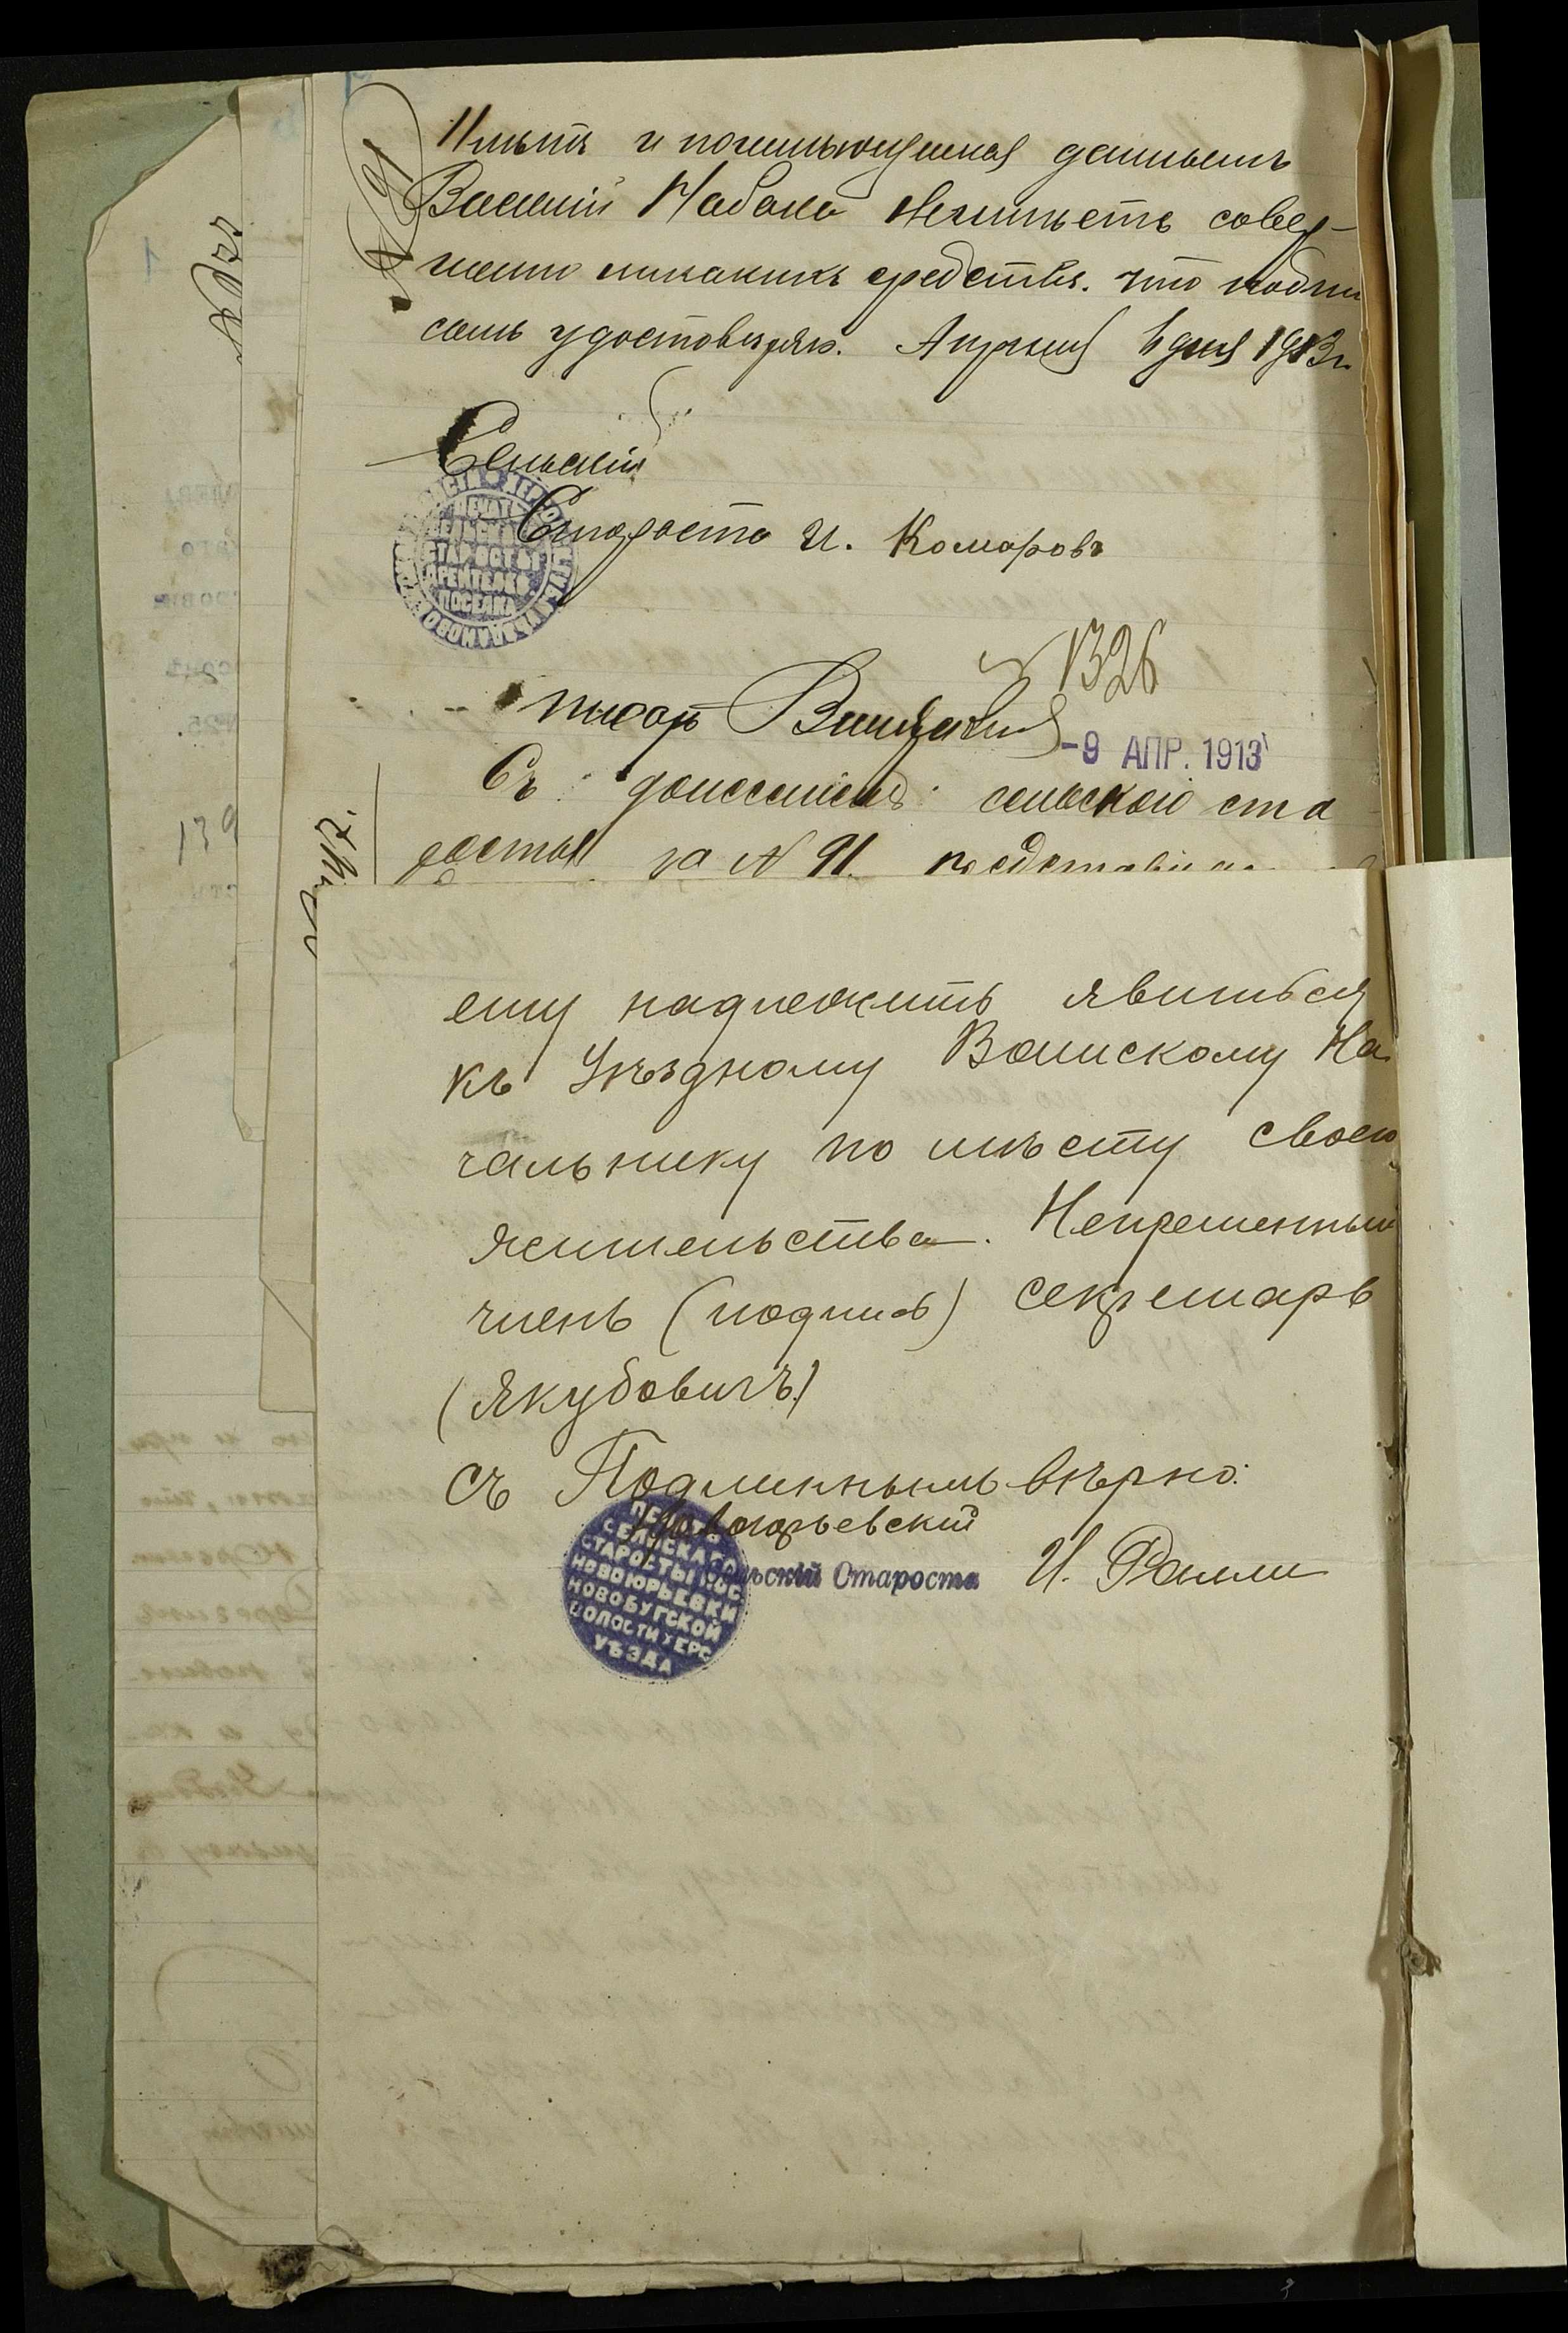 № 91
и поименованнаго данныхъ
Василій Набока неимѣетъ совер-
шенно никакихъ средствъ. что подпи
сомъ удостовѣряю. Апрѣля 6 дня 1913 г.
Сельскій
Староста И. Комаровъ
ПЕЧАТЬ
СЕЛЬСКАГО
СТАРОСТЫ
ПОСЕЛКА
№ 1326
писарь
-9 АПР. 1913
Съ донесеніемъ сельскаго ста
росты за № 91.
ему надлежитъ явиться
къ Уѣздному Воинскому На
чальнику по мѣсту своего
жительства. Непременный
членъ (подпись) секретарь
(Якубовичъ)
съ Подлиннымъ вѣрно:
Новоюрьевскій
Сельскій Староста И. Ралли
ПЕЧАТЬ
СЕЛЬСКАГО
СТАРОСТЫ ПОС
НОВОЮРЬЕВКИ
НОВОБУГСКОЙ
ВОЛОСТИ ХЕРС
УѢЗДА